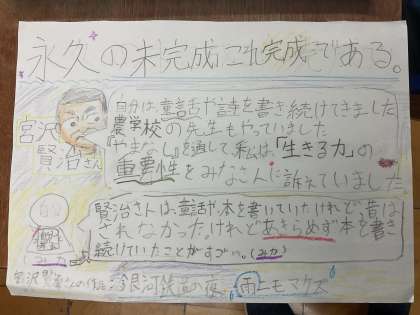 永久の未完成これ完成である。
宮沢賢治さん
自分は、童話や詩を書き続けてきました
農学校の先生もやっていました
『やまなし』を通して、私は「生きる力」の
重要性をみなさんに訴えていました
賢治さんは、童話や、本を書いていたけれど、昔は
されなかった。けれどあきらめず本を書き
続けていたことがすごい。(みか)
みか
宮沢賢治さんの作品 銀河鉄道の夜 雨ニモマケズ